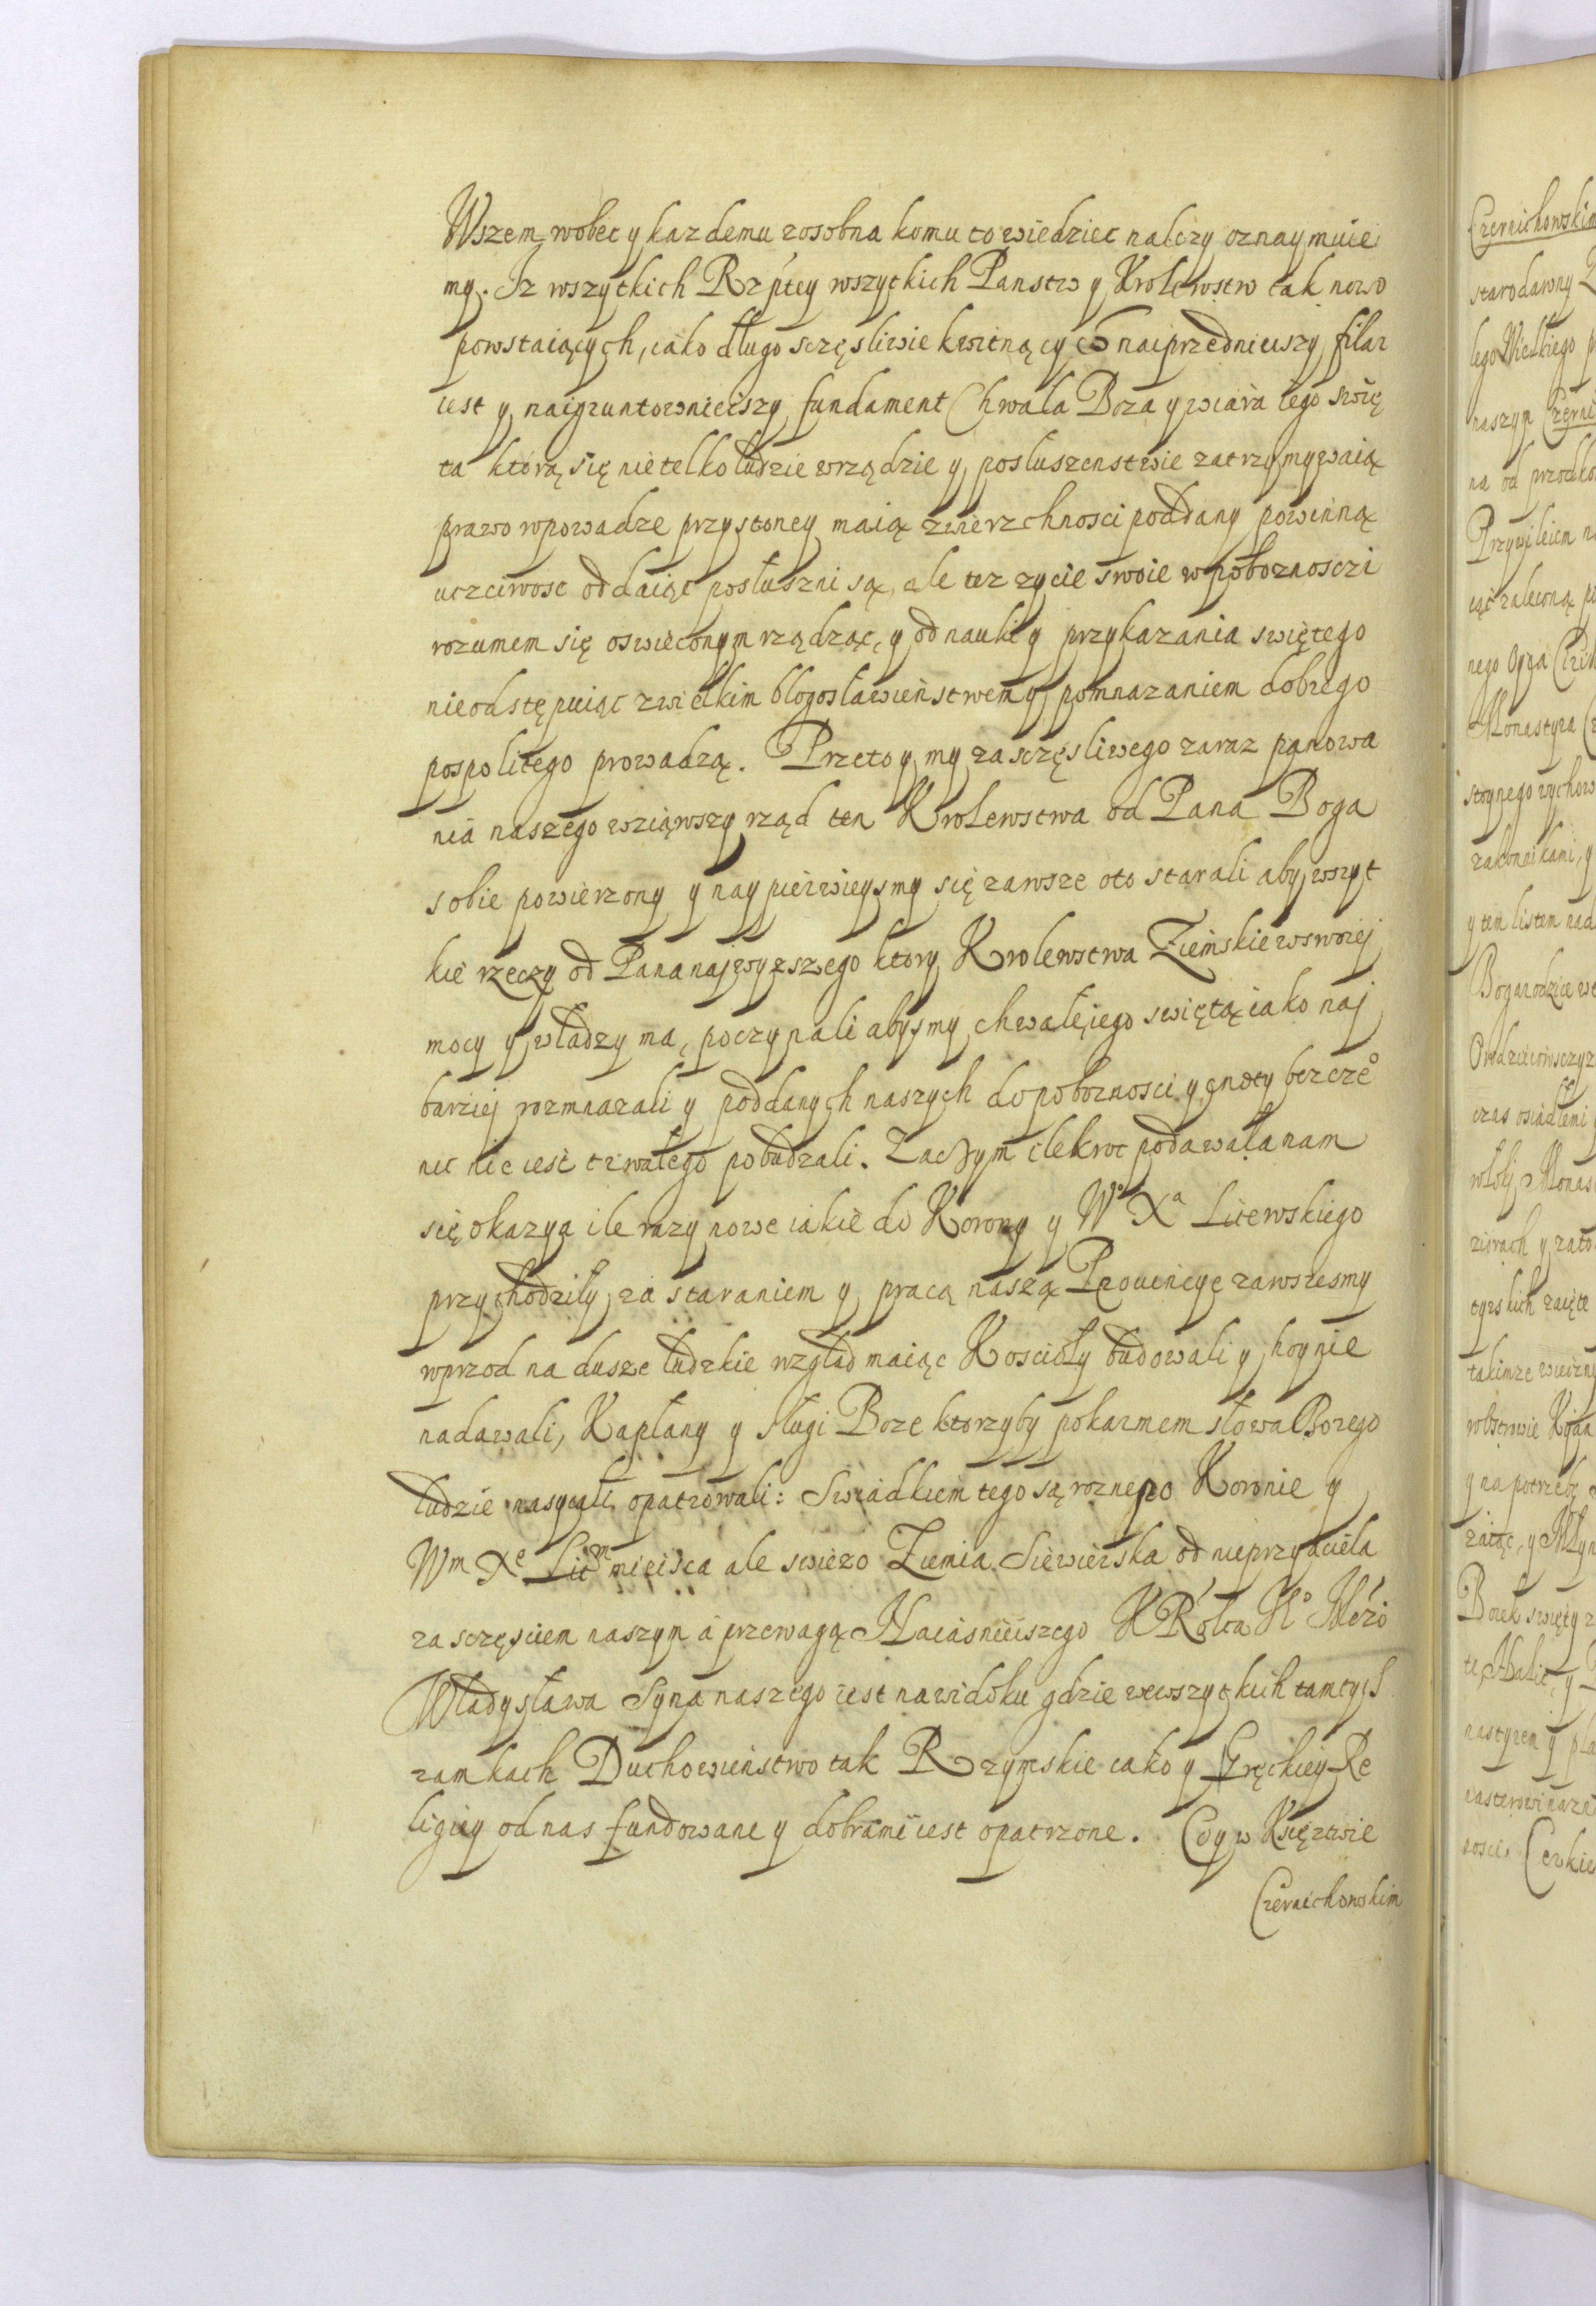 Wszem wobec y kazdemu zosobna komu to wiedziec nalezy oznaymuie
my. Iz wszytkich Rzptey wszytkich Panstw y Krolewstw tak nowo
powstaiących, iako długo sczęsliwie kwitnących naiprzednieiszy filar
iest y naigruntownieiszy fundament Chwała Boza y wiara iego swię
ta którą się nie telko ludzie wrządzie y posłuszenstwie zatrzymywaią
prawo wpowadze przystoney maią zwierzchnosci poddany powinną
uczciwosc oddaiąc posłuszni są, ale tez zycie swoie w poboznosczi
rozumem się oswieconym rządząc, y od nauki y przykazania swiętego
nieodstępuiąc zwielkim błogosławieństwem y pomnazaniem dobrego
pospolitego prowadzą. Przeto y my za sczęsliwego zaraz panowa
nia naszego wziąwszy rząd ten Krolewstwa od Pana Boga
sobie powierzony y nay pierwieysmy się zawsze oto starali aby wszyt
kie rzeczy od Pana najwyzszego ktory Krolewstwa Ziemskie wswoiej
mocy y władzy ma, poczynali abysmy chwałę iego swiętą iako naj
barziej rozmnazali y poddanych naszych do poboznosci y cnoty bez cze°
nic nie iest trwałego pobudzali. Zaczym ilekroc podawała nam
się okazya ile razy nowe iakie do Korony y W° Xa Litewskiego
przychodziły za staraniem y pracą naszą Prouincye zawszesmy
wprzod na dusze ludzkie wzgląd maiąc Koscioły budowali y hoynie
nadawali, Kapłany y sługi Boze ktorzyby pokarmem słowa Bozego
ludzie nasycali opatrowali: Swiadkiem tego są rozne po Koronie y
Wm Xe Litm mieisca ale swiezo Ziemia Siewierska od nieprzyiaciela
za sczęsciem naszym a przewagą Naiasnieiszego
Władysława Syna naszego iest nawidoku gdzie wewszytkich tamtych
zamkach Duchowienstwo tak Rzymskie iako y Greckiey Re
ligiey od nas fundowane y dobrami iest opatrzone. Co y w Xięztwie
Czernichowskim